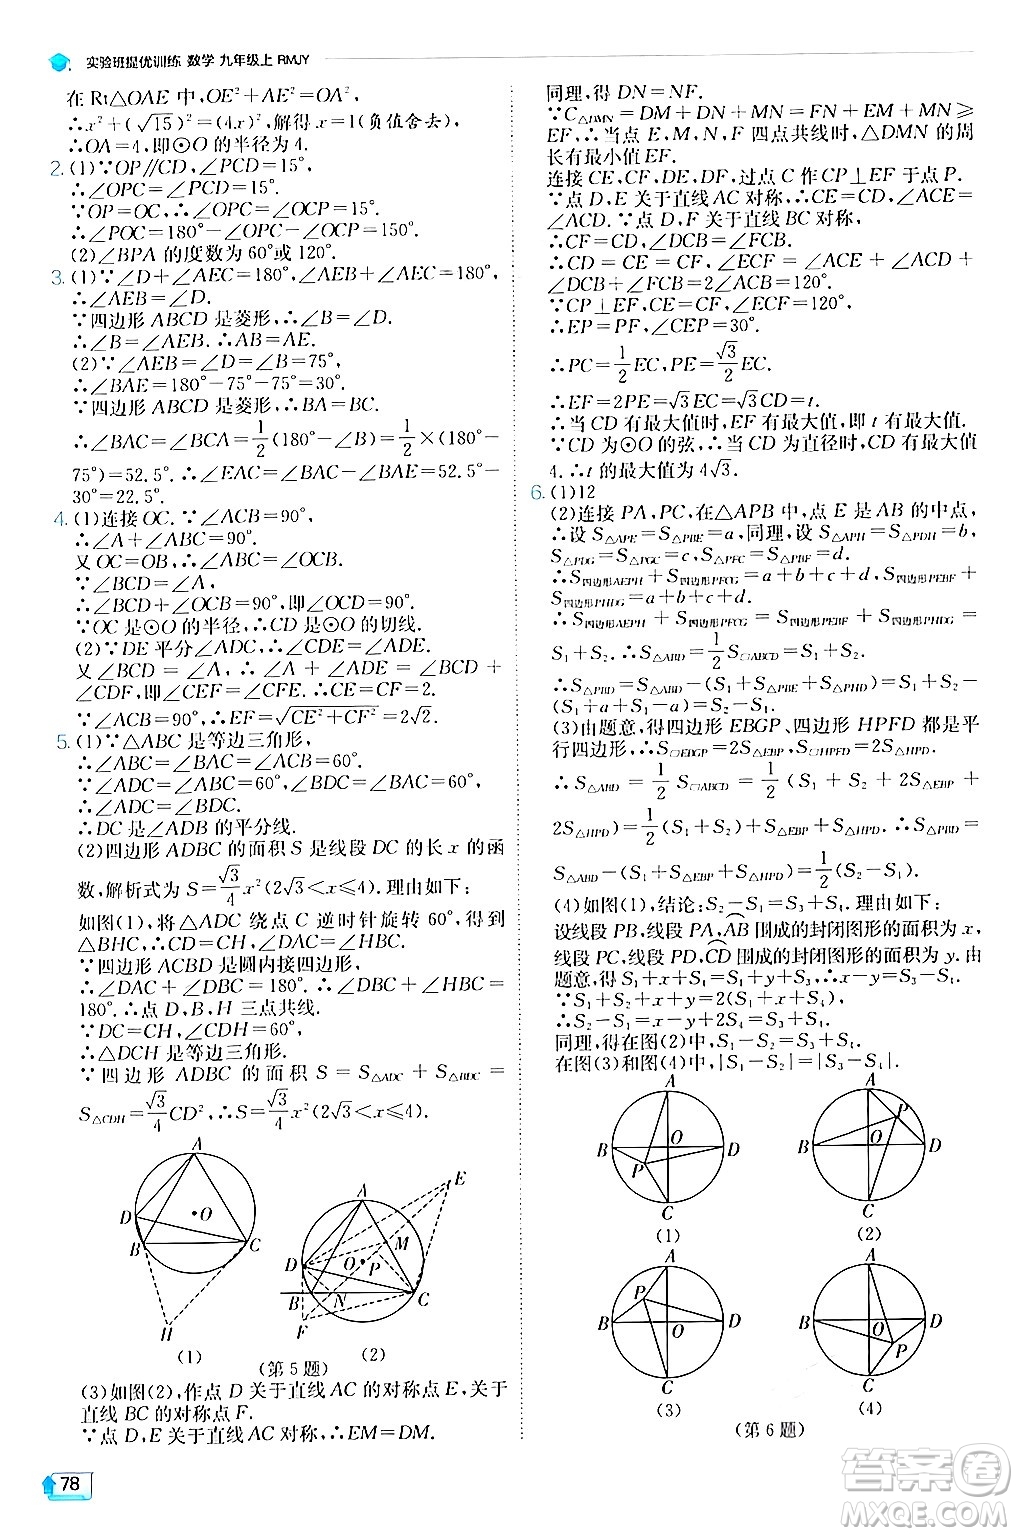 实验班提优训练 数学 九年级上 RMJY
在 Rt△OAE 中,OE²+AE²=OA²,
∴x²+(√15)²=(4x)²,解得 x=1(负值舍去),
∴OA=4,即⊙O 的半径为 4.
2. (1)∵OP∥CD,∠PCD=15°,
∴∠OPC=∠PCD=15°.
∵OP=OC,∴∠OPC=∠OCP=15°.
∴∠POC=180°-∠OPC-∠OCP=150°.
(2)∠BPA 的度数为 60°或 120°.
3. (1)∵∠D+∠AEC=180°,∠AEB+∠AEC=180°,
∴∠AEB=∠D.
∵四边形 ABCD 是菱形,∴∠B=∠D.
∴∠B=∠AEB.∴AB=AE.
(2)∵∠AEB=∠D=∠B=75°,
∴∠BAE=180°-75°-75°=30°.
∵四边形 ABCD 是菱形,∴BA=BC.
∴∠BAC=∠BCA=1/2(180°-∠B)=1/2×(180°-
75°)=52.5°.∴∠EAC=∠BAC-∠BAE=52.5°-
30°=22.5°.
4. (1)连接 OC.∵∠ACB=90°,
∴∠A+∠ABC=90°.
又 OC=OB,∴∠ABC=∠OCB.
∵∠BCD=∠A,
∴∠BCD+∠OCB=90°,即∠OCD=90°.
∵OC 是⊙O 的半径,∴CD 是⊙O 的切线.
(2)∵DE 平分∠ADC,∴∠CDE=∠ADE.
又∠BCD=∠A,∴∠A+∠ADE=∠BCD+
∠CDF,即∠CEF=∠CFE.∴CE=CF=2.
∵∠ACB=90°,∴EF=√(CE²+CF²)=2√2.
5. (1)∵△ABC 是等边三角形,
∴∠ABC=∠BAC=∠ACB=60°.
∵∠ADC=∠ABC=60°,∠BDC=∠BAC=60°,
∴∠ADC=∠BDC.
∴DC 是∠ADB 的平分线.
(2)四边形 ADBC 的面积 S 是线段 DC 的长 x 的函
数,解析式为 S=√3/4 x²(2√3<x≤4).理由如下:
如图(1),将△ADC 绕点 C 逆时针旋转 60°,得到
△BHC,∴CD=CH,∠DAC=∠HBC.
∵四边形 ACBD 是圆内接四边形,
∴∠DAC+∠DBC=180°.∴∠DBC+∠HBC=
180°.∴点 D,B,H 三点共线.
∵DC=CH,∠CDH=60°,
∴△DCH 是等边三角形.
∵四边形 ADBC 的面积 S=S△ADC+S△BDC=
S△CDH=√3/4 CD²,∴S=√3/4 x²(2√3<x≤4).
A
D
O
B
C
H
(1)
A
E
D
O
M
P
B
N
C
F
(2)
(第 5 题)
(3)如图(2),作点 D 关于直线 AC 的对称点 E,关于
直线 BC 的对称点 F.
∵点 D,E 关于直线 AC 对称,∴EM=DM.
78
同理,得 DN=NF.
∵C△DMN=DM+DN+MN=FN+EM+MN≥
EF,∴当点 E,M,N,F 四点共线时,△DMN 的周
长有最小值 EF.
连接 CE,CF,DE,DF,过点 C 作 CP⊥EF 于点 P.
∵点 D,E 关于直线 AC 对称,∴CE=CD,∠ACE=
∠ACD.∵点 D,F 关于直线 BC 对称,
∴CF=CD,∠DCB=∠FCB.
∴CD=CE=CF,∠ECF=∠ACE+∠ACD+
∠DCB+∠FCB=2∠ACB=120°.
∵CP⊥EF,CE=CF,∠ECF=120°,
∴EP=PF,∠CEP=30°.
∴PC=1/2 EC,PE=√3/2 EC.
∴EF=2PE=√3EC=√3CD=t.
∴当 CD 有最大值时,EF 有最大值,即 t 有最大值.
∵CD 为⊙O 的弦,∴当 CD 为直径时,CD 有最大值
4.∴t 的最大值为 4√3.
6. (1)12
(2)连接 PA,PC,在△APB 中,点 E 是 AB 的中点,
∴设 S△APE=S△PBE=a,同理,设 S△APH=S△PDH=b,
S△PDG=S△PGC=c,S△PFC=S△PBF=d.
∴S四边形AEPH+S四边形PFCG=a+b+c+d,S四边形PEBF+
S四边形PHDG=a+b+c+d.
∴S四边形AEPH+S四边形PFCG=S四边形PEBF+S四边形PHDG=
S₁+S₂.∴S△ABD=1/2 S□ABCD=S₁+S₂,
∴S△PBD=S△ABD-(S₁+S△PBE+S△PHD)=S₁+S₂-
(S₁+a+b)=S₂-(a+b).
(3)由题意,得四边形 EBGP、四边形 HPFD 都是平
行四边形,∴S□EBGP=2S△EBP,S□HPFD=2S△HPD.
∴S△ABD=1/2 S□ABCD=1/2(S₁+S₂+2S△EBP+
2S△HPD)=1/2(S₁+S₂)+S△EBP+S△HPD.∴S△PBD=
S△ABD-(S₁+S△EBP+S△HPD)=1/2(S₂-S₁).
(4)如图(1),结论:S₂-S₁=S₃+S₄.理由如下:
设线段 PB,线段 PA,AB 围成的封闭图形的面积为 x,
线段 PC,线段 PD,CD 围成的封闭图形的面积为 y.由
题意,得 S₁+x+S₄=S₁+y+S₃,∴x-y=S₃-S₄.
∵S₁+S₂+S₃+S₄=2(S₁+x+S₄),
∴S₂-S₁=x+y+2S₄=S₃+S₄.
同理,得在图(2)中,S₁-S₂=S₃+S₄.
在图(3)和图(4)中,|S₁-S₂|=|S₃-S₄|.
A
B
O
D
P
C
(1)
A
P
B
O
D
C
(2)
A
P
B
O
D
C
(3)
A
B
O
D
P
C
(4)
(第 6 题)
答案圈
MXQE.COM